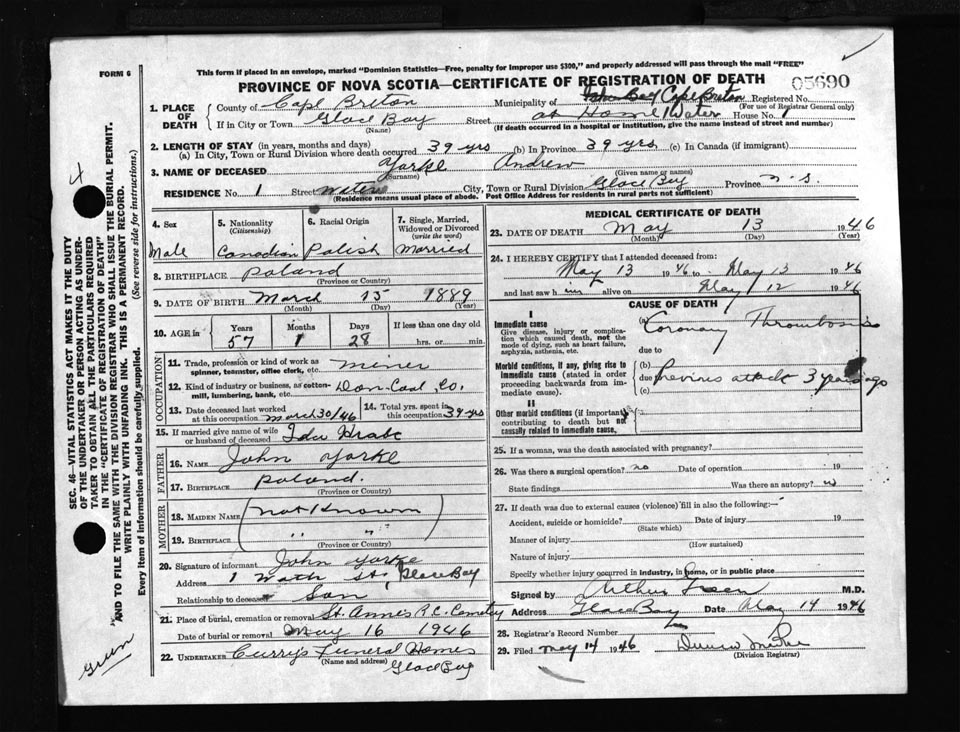 This form if placed in an envelope, marked "Dominion Statistics—Free, penalty for improper use $300," and properly addressed will pass through the mail "FREE"
FORM 6
PROVINCE OF NOVA SCOTIA—CERTIFICATE OF REGISTRATION OF DEATH
05690
1. PLACE OF DEATH County of Cape Breton Municipality of Cape Breton Registered No.
(For use of Registrar General only)
If in City or Town Glace Bay Street at Home Water House No. 1
(Name) (If death occurred in a hospital or institution, give the name instead of street and number)
2. LENGTH OF STAY (in years, months and days)
(a) In City, Town or Rural Division where death occurred 39 yrs (b) In Province 39 yrs. (c) In Canada (if immigrant)
3. NAME OF DECEASED Yorke Andrew
(Surname) (Given name or names)
RESIDENCE No. 1 Street Water City, Town or Rural Division Glace Bay Province N.S.
(Residence means usual place of abode. Post Office Address for residents in rural parts not sufficient)
4. Sex 5. Nationality (Citizenship) 6. Racial Origin 7. Single, Married, Widowed or Divorced (write the word)
Male Canadian Polish Married
8. BIRTHPLACE Poland
(Province or Country)
9. DATE OF BIRTH March 15 1889
(Month) (Day) (Year)
10. AGE in Years Months Days If less than one day old
57 1 28 hrs. or min.
OCCUPATION
11. Trade, profession or kind of work as spinner, teamster, office clerk, etc. miner
12. Kind of industry or business, as cotton-mill, lumbering, bank, etc. Dom. Coal Co.
13. Date deceased last worked at this occupation March 30/46 14. Total yrs. spent in this occupation 39 yrs
15. If married give name of wife or husband of deceased Ida
FATHER
16. NAME John Yorke
17. BIRTHPLACE Poland.
(Province or Country)
MOTHER
18. MAIDEN NAME (not known)
19. BIRTHPLACE " "
(Province or Country)
20. Signature of informant John Yorke
Address 1 St. Glace Bay
Relationship to deceased Son
21. Place of burial, cremation or removal St. Annes R.C. Cemetery
Date of burial or removal May 16 1946
22. UNDERTAKER Curry's Funeral Homes
(Name and address) Glace Bay
MEDICAL CERTIFICATE OF DEATH
23. DATE OF DEATH May 13 1946
(Month) (Day) (Year)
24. I HEREBY CERTIFY that I attended deceased from:
May 13 1946 to May 13 1946
and last saw him alive on May 12 1946
CAUSE OF DEATH
I
Immediate cause
Give disease, injury or complication which caused death, not the mode of dying, such as heart failure, asphyxia, asthenia, etc.
(a) Coronary Thrombosis
due to
Morbid conditions, if any, giving rise to immediate cause (stated in order proceeding backwards from immediate cause).
(b)
due Previous attack 3 years ago
(c)
II
Other morbid conditions (if important) contributing to death but not causally related to immediate cause.
25. If a woman, was the death associated with pregnancy?
26. Was there a surgical operation? no Date of operation 19
State findings Was there an autopsy?
27. If death was due to external causes (violence) fill in also the following:—
Accident, suicide or homicide? Date of injury 19
(State which)
Manner of injury
(How sustained)
Nature of injury
Specify whether injury occurred in industry, in home, or in public place
Signed by Arthur M.D.
Address Glace Bay Date May 14 1946
28. Registrar's Record Number
29. Filed May 14 1946
(Division Registrar)
SEC. 46—VITAL STATISTICS ACT MAKES IT THE DUTY
OF THE UNDERTAKER OR PERSON ACTING AS UNDER-
TAKER TO OBTAIN ALL THE PARTICULARS REQUIRED
IN THE "CERTIFICATE OF REGISTRATION OF DEATH"
AND TO FILE THE SAME WITH THE DIVISION REGISTRAR WHO SHALL ISSUE THE BURIAL PERMIT.
WRITE PLAINLY WITH UNFADING INK. THIS IS A PERMANENT RECORD.
Every item of Information should be carefully supplied. (See reverse side for instructions.)